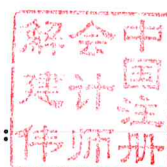 中国注册
会计师
解建伟
: